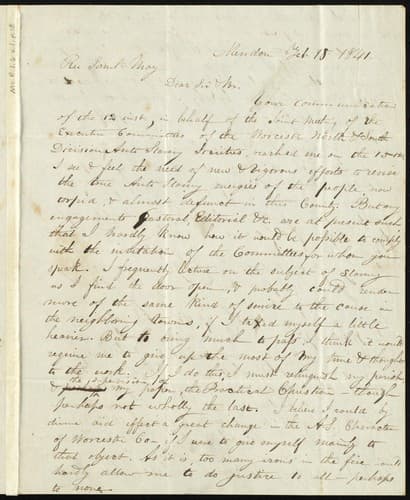 Mendon Feb 15 1841.
Rev Saml May
Dear Sir & Br.
Your communication
of the 12 inst, in behalf of the Joint Meeting of the
Executive Committees of the Worcester North & South
Division Anti Slavery Societies, reached me on the 13th
I see & feel the need of new & vigorous efforts to rouse
the true Anti Slavery energies of the people, now
torpid, & almost defunct in this County. But my
engagements Pastoral, Editorial &c. are at present such
that I hardly know how it would be possible to comply
with the invitation of the Committees, for whom you
speak. I frequently lecture on the subject of Slavery
as I find the door open, & probably could render
more of the same kind of service to the cause in
the neighboring towns, if I taxed myself a little
heavier. But to bring much to pass, I think it would
require me to give up the most of my time & thoughts
to the work. If I do this, I must relinquish my parish
& the supervision of my paper, the Practical Christian – though
perhaps not wholly the last. I believe I could by
divine aid effect a great change in the A.S. Character
of Worcester Co. if I were to give myself mainly to
that object. As it is, too many irons in the fire will
hardly allow me to do justice to all – perhaps
to none.